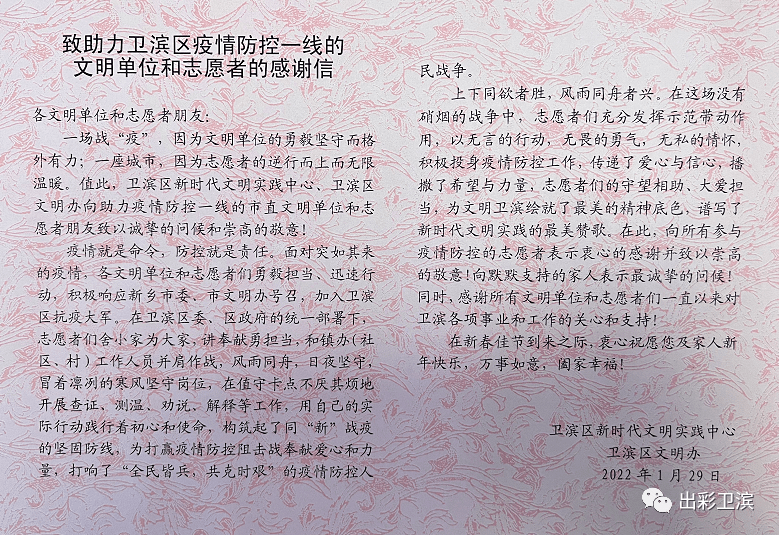 致助力卫滨区疫情防控一线的
文明单位和志愿者的感谢信
各文明单位和志愿者朋友:
一场战“疫”,因为文明单位的勇毅坚守而格
外有力;一座城市,因为志愿者的逆行而上而无限
温暖。值此,卫滨区新时代文明实践中心、卫滨区
文明办向助力疫情防控一线的市直文明单位和志
愿者朋友致以诚挚的问候和崇高的敬意!
疫情就是命令,防控就是责任。面对突如其来
的疫情,各文明单位和志愿者们勇毅担当、迅速行
动,积极响应新乡市委、市文明办号召,加入卫滨
区抗疫大军。在卫滨区委、区政府的统一部署下,
志愿者们舍小家为大家,讲奉献勇担当,和镇办(社
区、村)工作人员并肩作战,风雨同舟,日夜坚守,
冒着凛冽的寒风坚守岗位,在值守卡点不厌其烦地
开展查证、测温、劝说、解释等工作,用自己的实
际行动践行着初心和使命,构筑起了同“新”战疫
的坚固防线,为打赢疫情防控阻击战奉献爱心和力
量,打响了“全民皆兵,共克时艰”的疫情防控人
民战争。
上下同欲者胜,风雨同舟者兴。在这场没有
硝烟的战争中,志愿者们充分发挥示范带动作
用,以无言的行动,无畏的勇气,无私的情怀,
积极投身疫情防控工作,传递了爱心与信心,播
撒了希望与力量,志愿者们的守望相助、大爱担
当,为文明卫滨绘就了最美的精神底色,谱写了
新时代文明实践的最美赞歌。在此,向所有参与
疫情防控的志愿者表示衷心的感谢并致以崇高
的敬意!向默默支持的家人表示最诚挚的问候!
同时,感谢所有文明单位和志愿者们一直以来对
卫滨各项事业和工作的关心和支持!
在新春佳节到来之际,衷心祝愿您及家人新
年快乐,万事如意,阖家幸福!
卫滨区新时代文明实践中心
卫滨区文明办
2022年1月29日
出彩卫滨